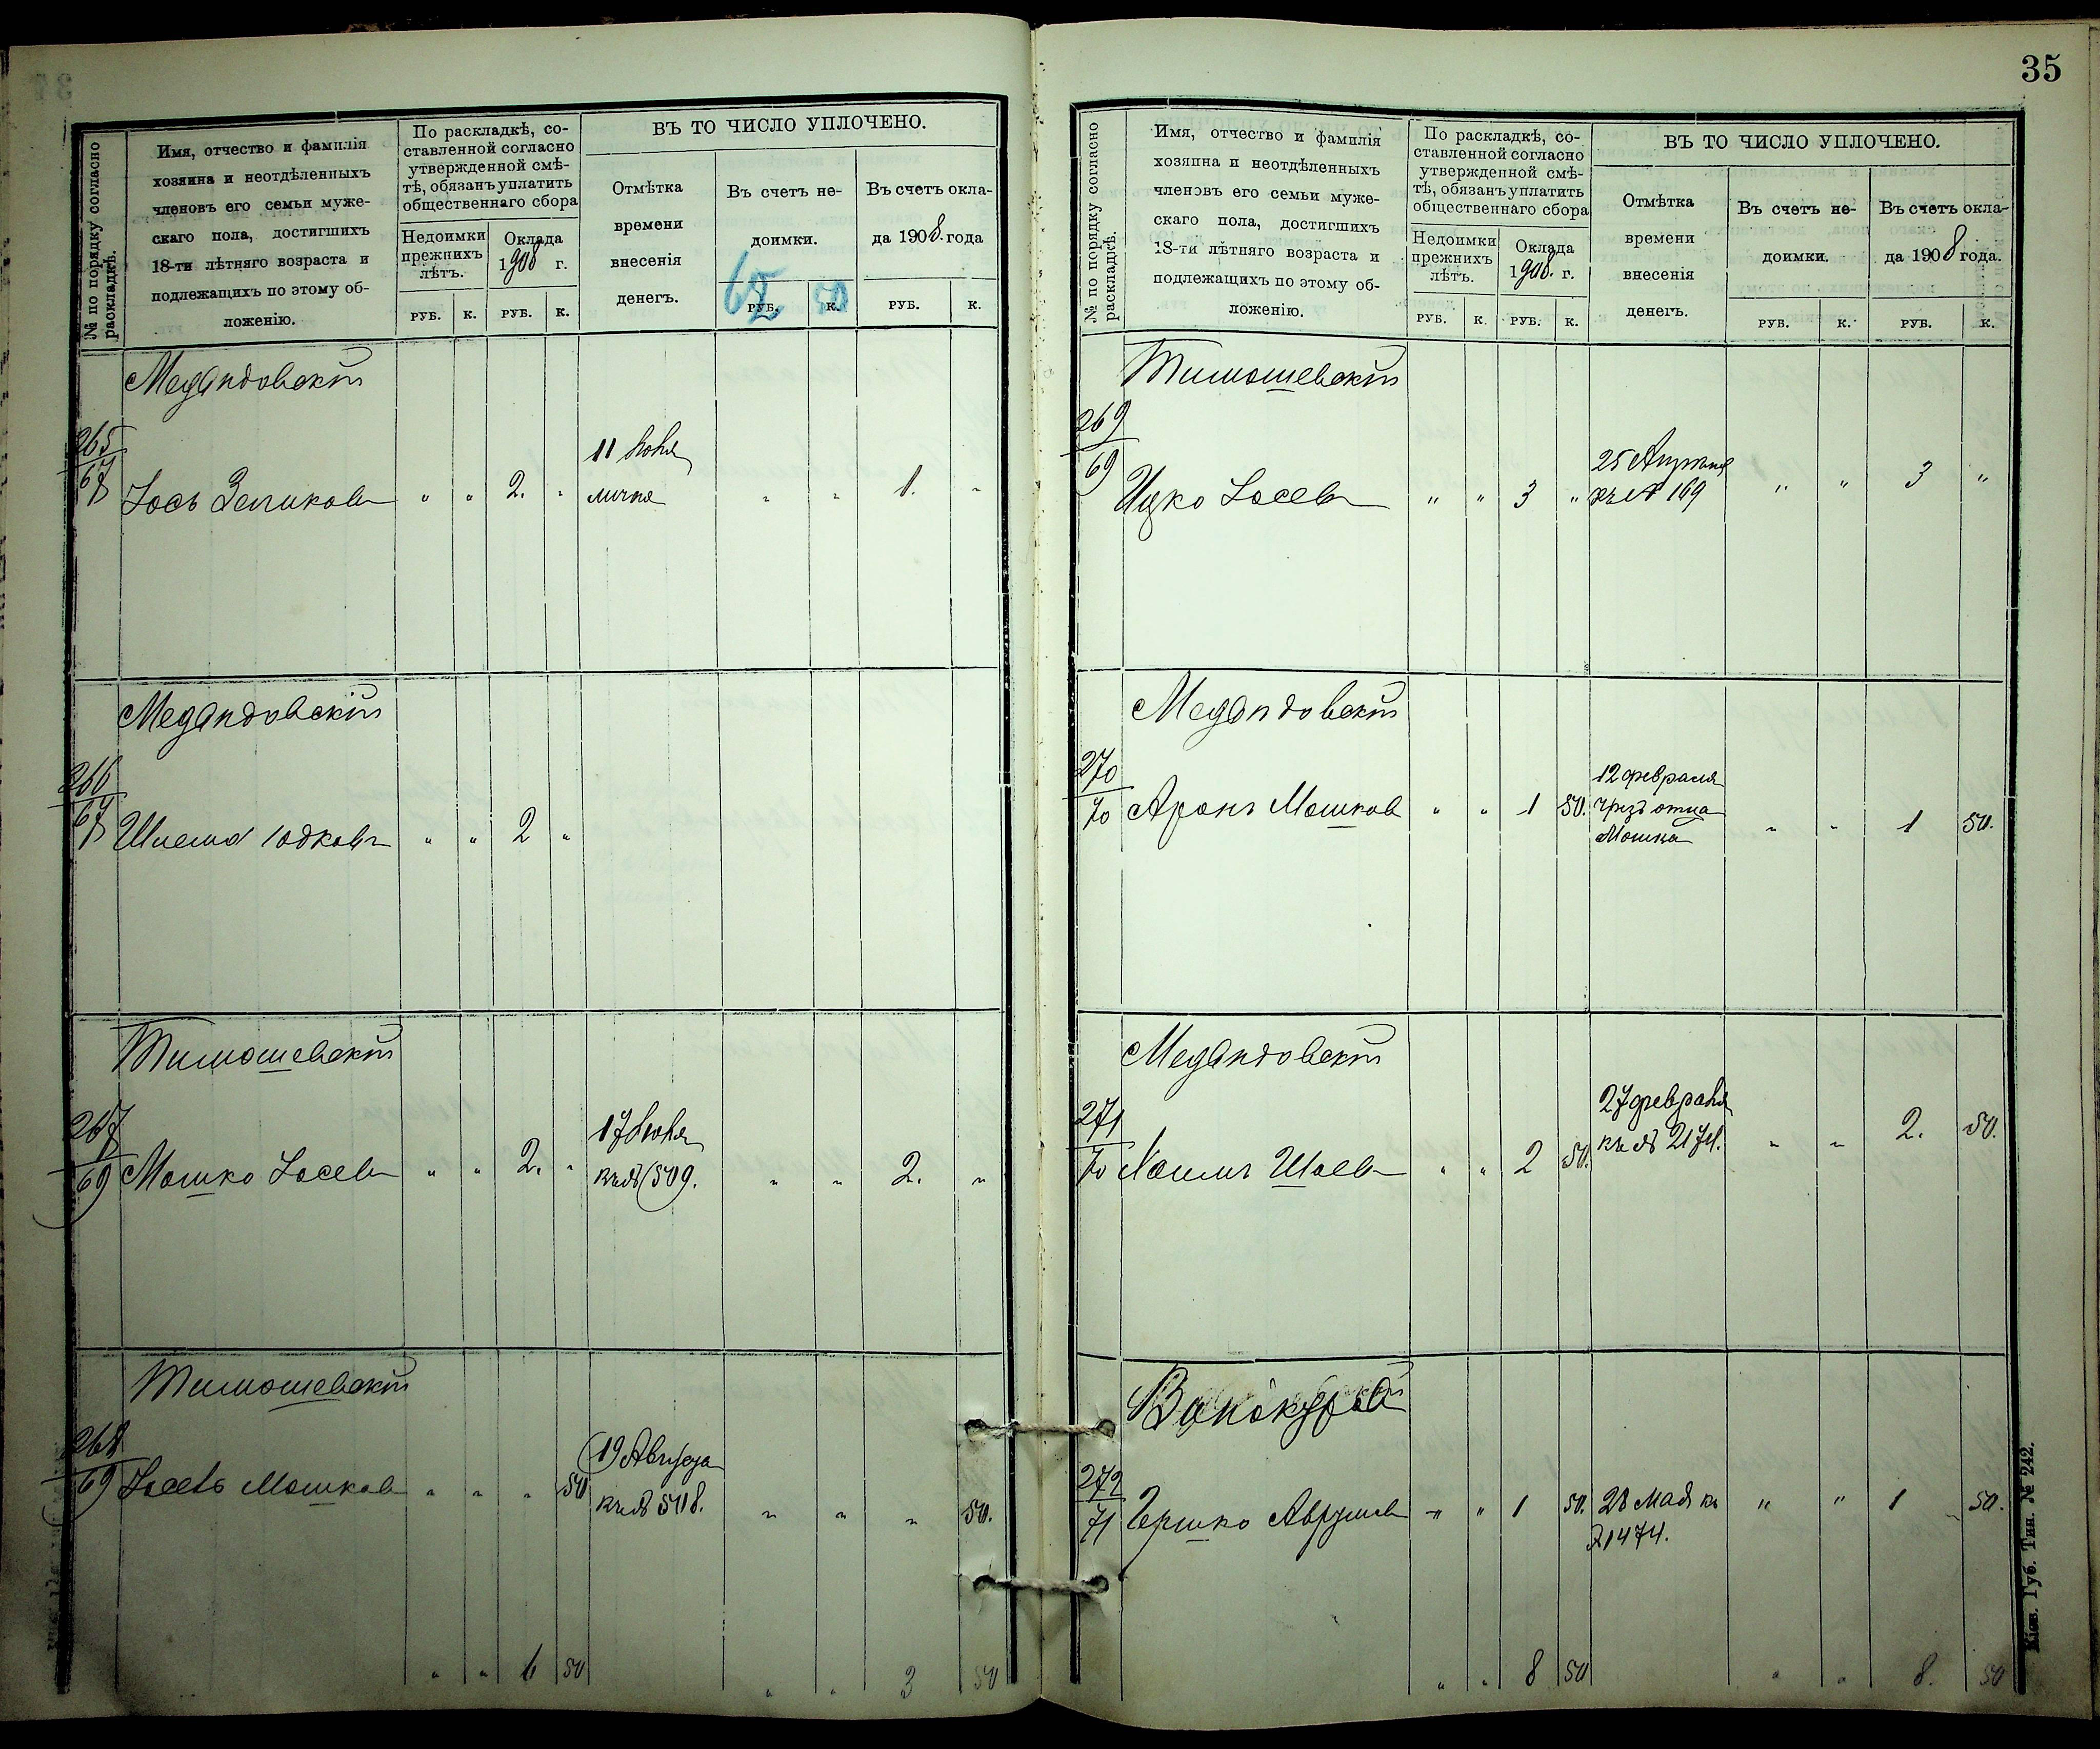 35
№ по порядку согласно раскладкѣ.
Имя, отчество и фамилія
хозяина и неотдѣленныхъ
членовъ его семьи муже-
скаго пола, достигшихъ
18-ти лѣтняго возраста и
подлежащихъ по этому об-
ложенію.
По раскладкѣ, со-
ставленной согласно
утвержденной смѣ-
тѣ, обязанъ уплатить
общественнаго сбора
Недоимки
прежнихъ
лѣтъ.
Оклада
1908 г.
РУБ. К. РУБ. К.
ВЪ ТО ЧИСЛО УПЛОЧЕНО.
Отмѣтка
времени
внесенія
денегъ.
Въ счетъ не-
доимки.
Въ счетъ окла-
да 1908. года
РУБ. К. РУБ. К.
50
Медвѣдовскій
265
67
Іось Зеликовъ " " 2. "
11 Іюня
лично
" " 1. "
Медвѣдовскій
266
67
Шлема Юдковъ " " 2 "
Тимошевскій
267
69
Мошко Іосевъ " " 2. "
17 Іюня
къ № 509.
" " 2. "
Тимошевскій
268
69
Іосевъ Мошков " " " 50
19 Августа
къ № 508.
" " " 50.
" " 6 50 " " 3 50
№ по порядку согласно раскладкѣ.
Имя, отчество и фамилія
хозяина и неотдѣленныхъ
членовъ его семьи муже-
скаго пола, достигшихъ
18-ти лѣтняго возраста и
подлежащихъ по этому об-
ложенію.
По раскладкѣ, со-
ставленной согласно
утвержденной смѣ-
тѣ, обязанъ уплатить
общественнаго сбора
Недоимки
прежнихъ
лѣтъ.
Оклада
1908. г.
РУБ. К. РУБ. К.
ВЪ ТО ЧИСЛО УПЛОЧЕНО.
Отмѣтка
времени
внесенія
денегъ.
Въ счетъ не-
доимки.
Въ счетъ окла-
да 1908 года.
РУБ. К. РУБ. К.
Тимошевскій
269
69
Ицко Іосевъ " " 3 "
25 Апрѣля
къ № 169
" " 3 "
Медвѣдовскій
270
70
Аронъ Мошков " " 1 50.
12 февраля
чрезъ отца
Мошка
" " 1 50.
Медвѣдовскій
271
70
Хаимъ Шаевъ " " 2 50.
27 февраля
къ № 2174.
" " 2. 50.
Винокуръ
272
71
Гершко Аврумов " " 1 50.
28 Мая къ
№ 1474.
" " 1 50.
" " 8 50 " " 8. 50
Кіев. Губ. Тип. № 242.